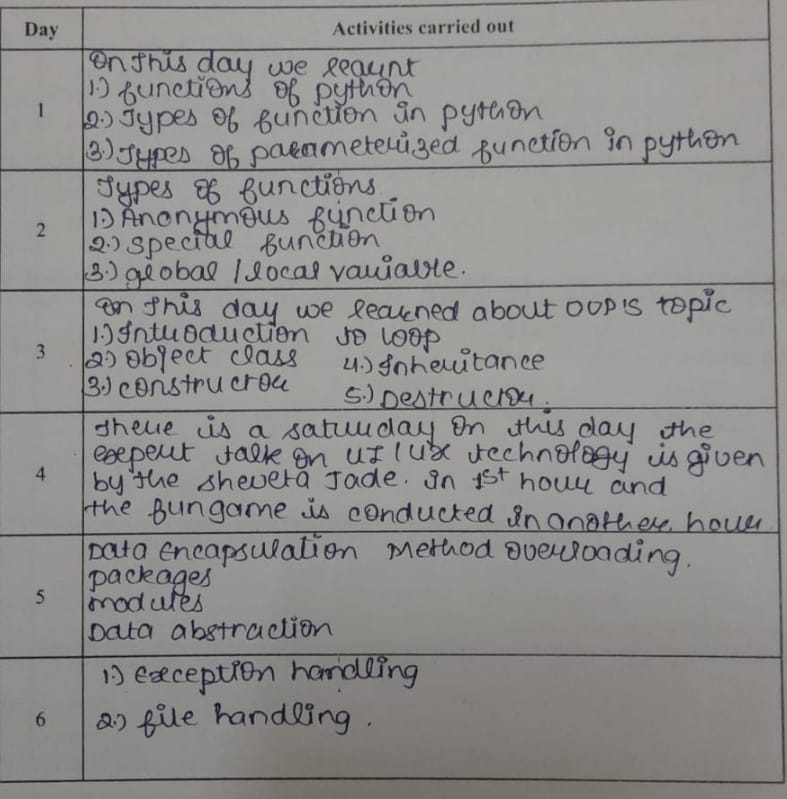 Day Activities carried out
1
On This day we learnt
1.) functions of python
2.) Types of function in python
3.) Types of parameterized function in python
2
Types of functions
1.) Anonymous function
2.) special function
3.) global / local variable.
3
On This day we learned about OOP'S topic
1.) Introduction to loop
2.) Object class 4.) Inheritance
3.) constructor 5.) Destructor.
4
There is a saturday On this day the
expert talk on UI / UX technology is given
by the Sheveta Jade. in 1st hour and
the fungame is conducted in another hour
5
Data Encapsulation Method overloading.
packages
modules
Data abstraction
6
1.) Exception handling
2.) file handling .